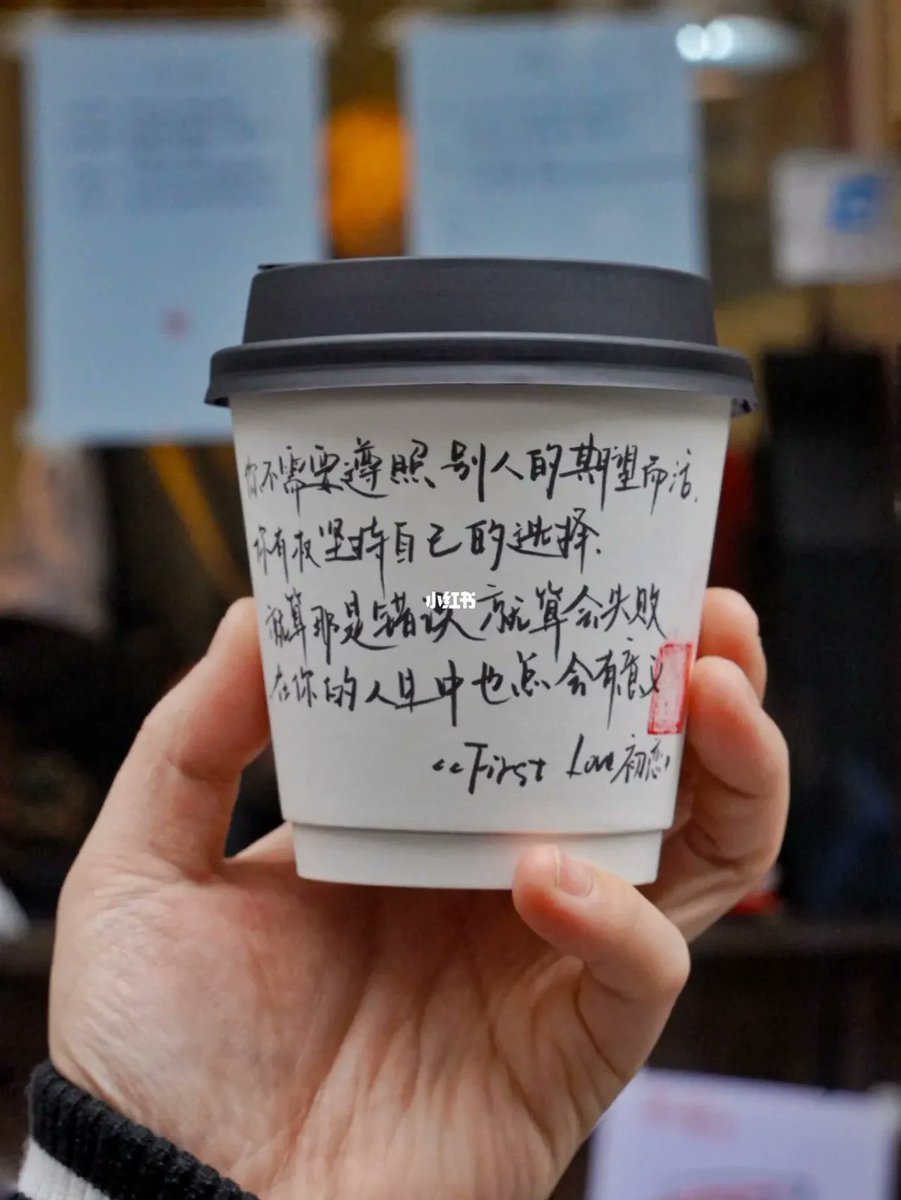 你不需要遵照别人的期望而活,
你有权坚持自己的选择.
就算那是错误 就算会失败
小红书
在你的人生中也总会有意义
<<First Love 初恋>